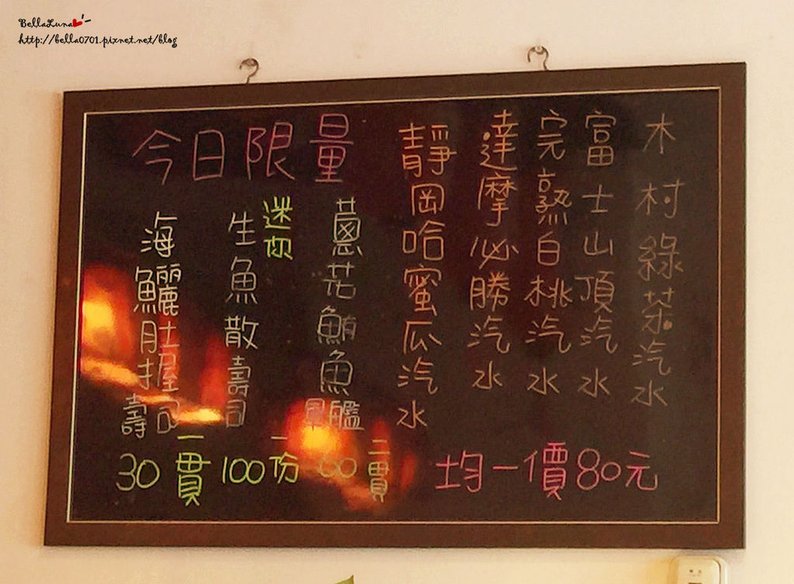 BellaLuna
http://bella0701.pixnet.net/blog
木村綠茶汽水
富士山頂汽水
完熟白桃汽水
達摩必勝汽水
靜岡哈蜜瓜汽水
均一價80元
今日限量
蔥花鮪魚軍艦
60二貫
迷你
生魚散壽司
100一份
海鱺肚握壽司
30一貫